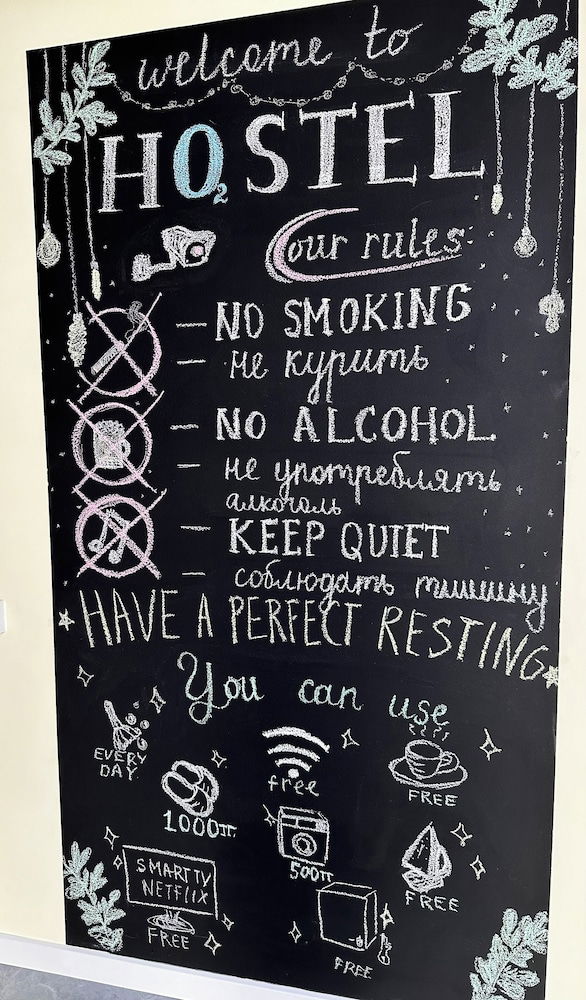 welcome to
HO₂STEL
our rules:
— NO SMOKING
— не курить
— NO ALCOHOL
— не употреблять
алкоголь
— KEEP QUIET
— соблюдать тишину
HAVE A PERFECT RESTING
You can use
EVERY
DAY
free
FREE
1000тг
500тг
FREE
SMART TV
NETFLIX
FREE
FREE